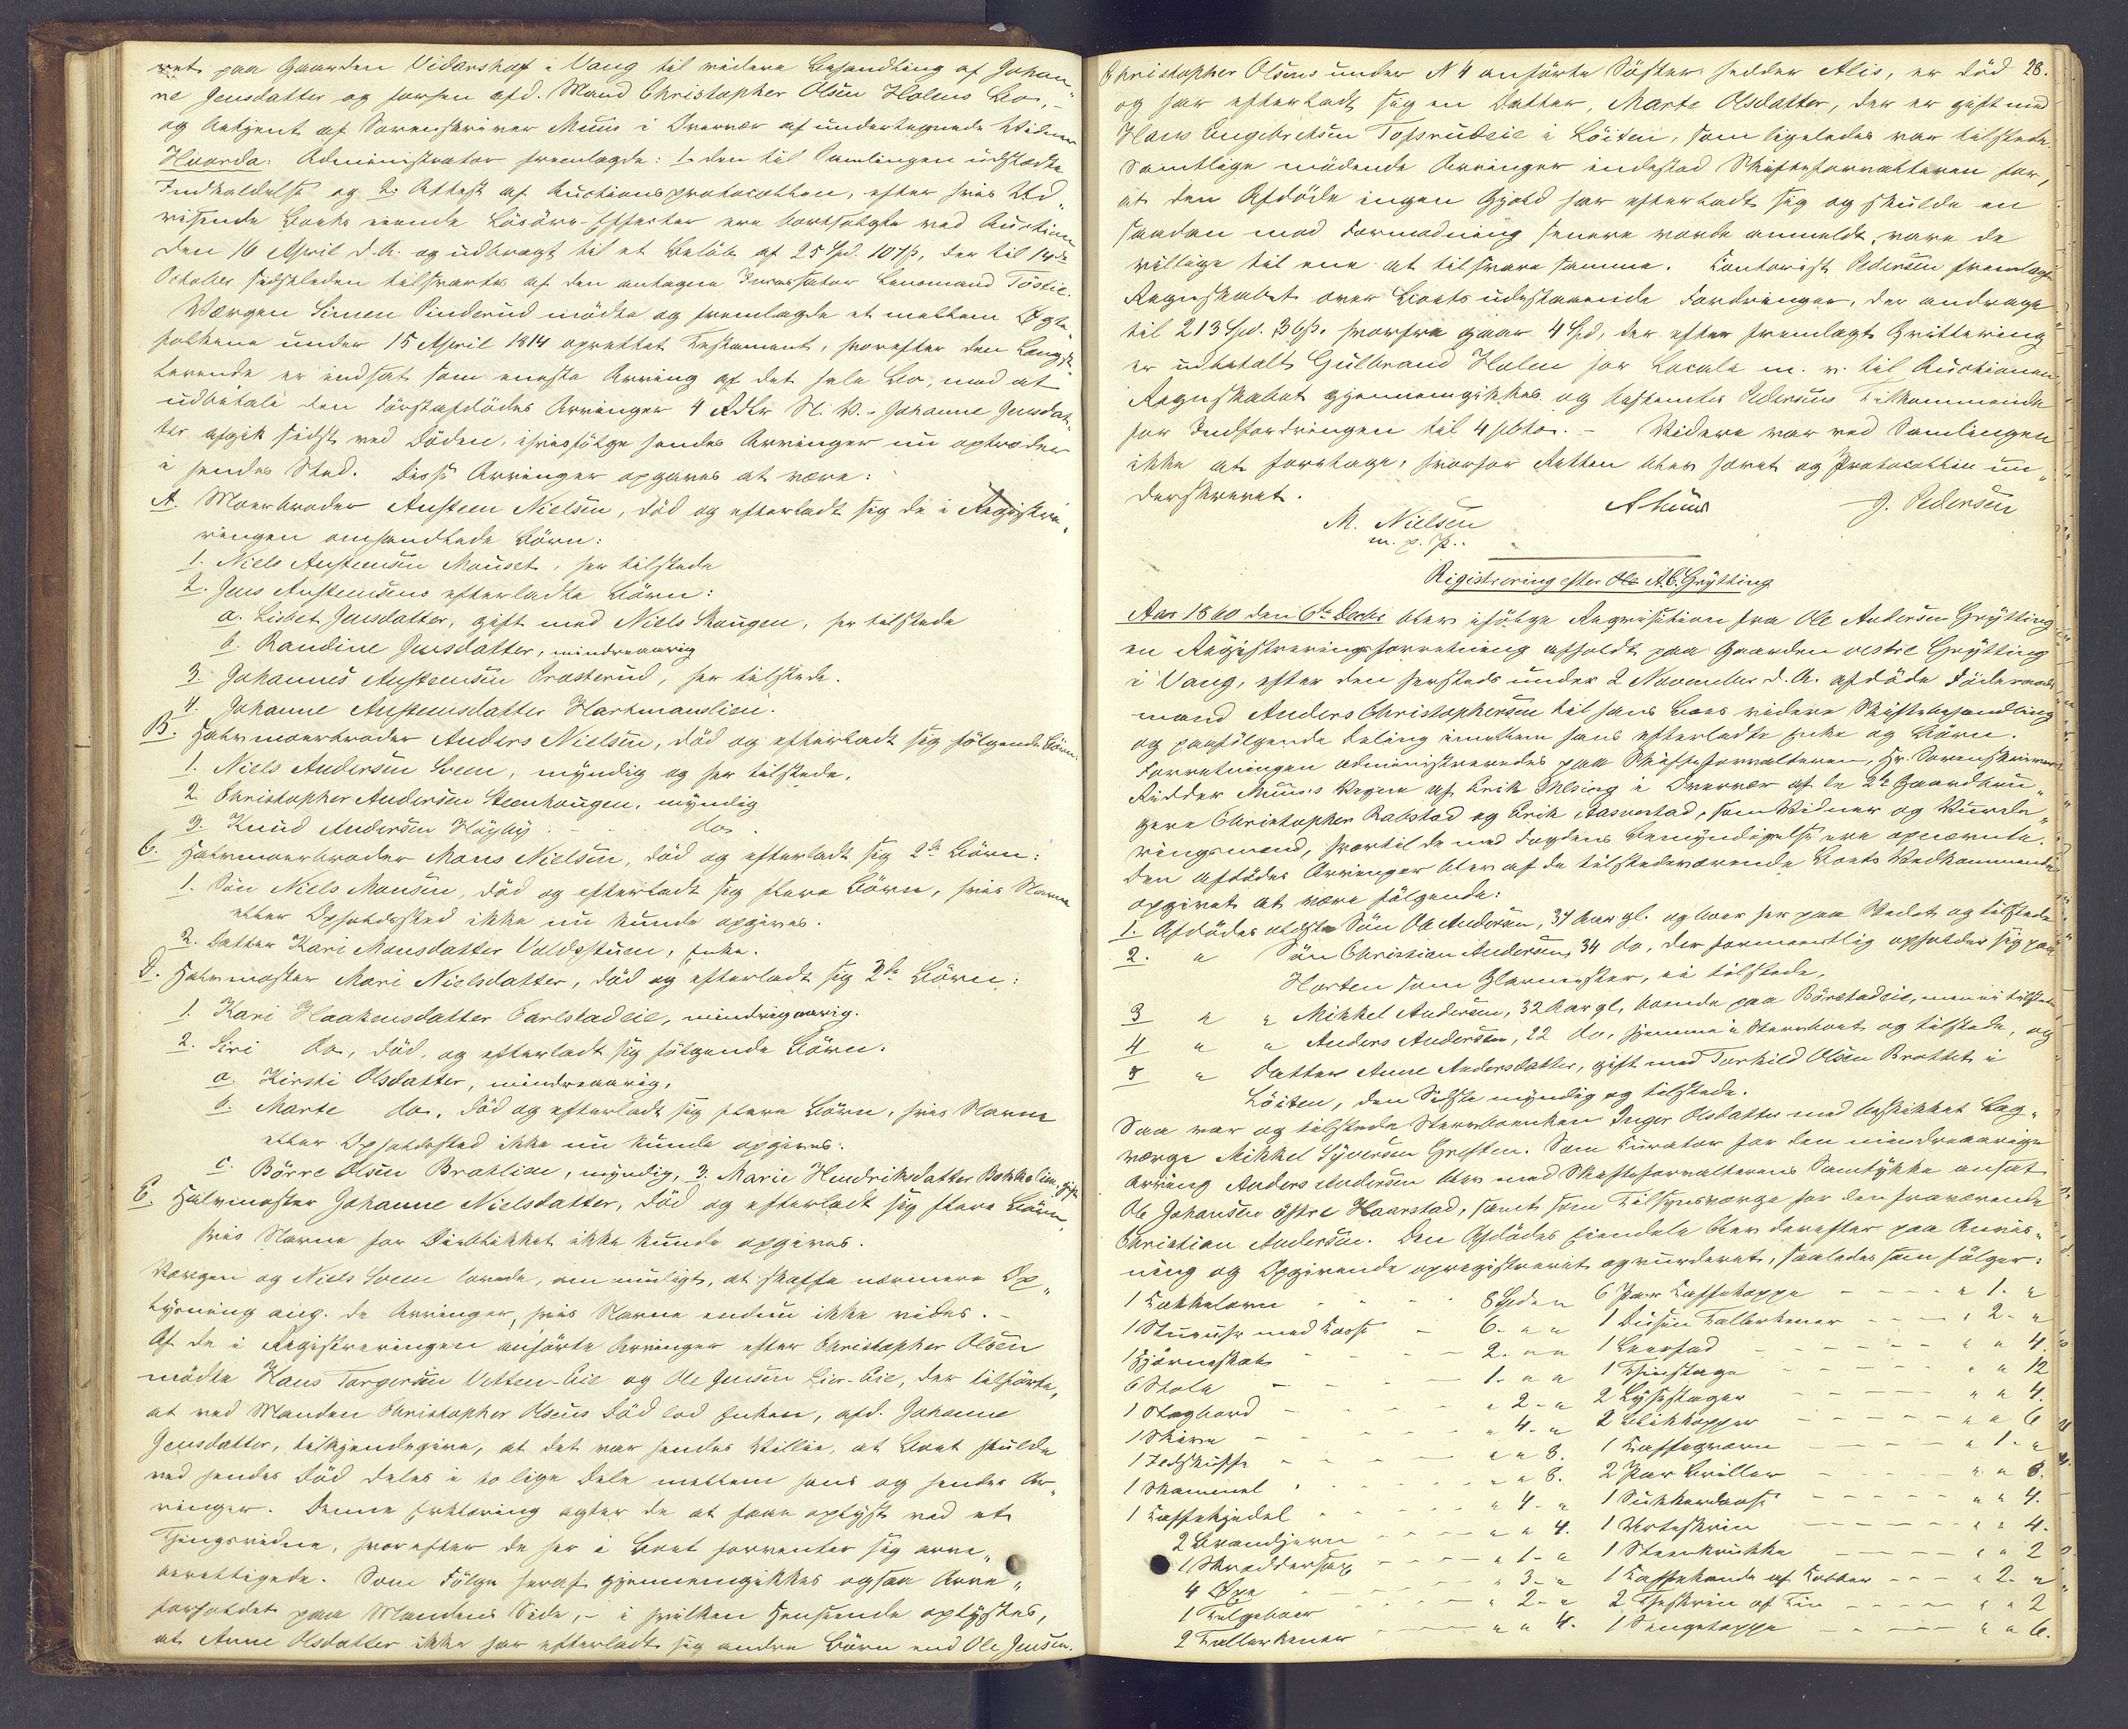 ret paa Gaarden Vidarshof i Vang til videre Behandling af Johan„
ne Jensdatter og forhen afd. Mand Christopher Olsen Holens Bo, –
og betjent af Sorenskriver Munus i Overvær af undertegnede Vidner
Hvorda: Administrator fremlagde: 1. den til Samlingen udstædte
Indkaldelse og 2. Attest af Auctionsprotocollen, efter hvis Ud„
visende Boets eiende Lösöre-Effecter ere bortsolgte ved Auction
den 16 April d. A. og udbragt til et Beløb af 25 Spd. 107 ß, der til 14de
October sidstleden tilsvartes af den antagne Incassator Lensmand Töstie.
Værgen Simen Pinderud mödte og fremlagde et mellem Ægte„
folkene under 15 April 1814 oprettet Testament, hvorefter den Længst„
levende er indsat som eneste Arving af det hele Bo, mod at
udbetale den Förstafdödes Arvinger 4 Rdlr N. V. – Johanne Jensdat„
ter afgik sidst ved Döden, ihvisfölge hendes Arvinger nu optræder
i hendes Sted. Disse Arvinger opgaves at være:
A. Moerbroder Austeen Nielsen, död og efterladt sig de i Registre„
ringen omhandlede Börn:
1. Niels Austeensen Mouset, her tilstede
2. Jens Austeensens efterladte Börn:
a. Lisbet Jensdatter, gift med Niels Skougen, her tilstede
b. Randine Jensdatter, mindreaarig
3. Johannes Austeensen Prosterud, her tilstede.
4. Johanne Austeensdatter Hartmanslien.
B. Halvmoerbroder Anders Nielsen, död og efterladt sig fölgende Börn:
1. Niels Andersen Sveen, myndig og her tilstede.
2. Christopher Andersen Steenhougen, myndig
3. Knud Andersen Höyby . - - - do.
C. Halvmoerbroder Mons Nielsen, död og efterladt sig 2de Börn:
1. Sön Niels Monsen, död og efterladt sig flere Börn, hvis Navne
eller Opholdssted ikke nu kunde opgives.
2. Datter Kari Monsdatter Voldsstuen, Enke.
D. Halvmoster Mari Nielsdatter, död og efterladt sig 3de Börn:
1. Kari Haakensdatter Carlstadeie, mindreaarig.
2. Siri do, död, og efterladt sig fölgende Börn:
a. Kirsti Olsdatter, mindreaarig,
b. Marte do, död og efterladt sig flere Börn, hvis Navne
eller Opholdssted ikke nu kunde opgives.
c. Börre Olsen Brotlien, myndig, 3. Marie Hendriksdatter Bokkelien, gift
E. Halvmoster Johanne Nielsdatter, död og efterladt sig flere Börn,
hvis Navne for Öieblikket ikke kunde opgives.
Værgen og Niels Sveen lovede, om muligt, at skaffe nærmere Op„
lysning ang. de Arvinger, hvis Navne endnu ikke vides. –
Af de i Registreringen anförte Arvinger efter Christopher Olsen
mödte Hans Torgersen Vetten-Eie og Ole Jensen Lier-Eie, der tilförte,
at ved Manden Christopher Olsens Död lod Enken, afd. Johanne
Jensdatter, tilkjendegive, at det var hendes Villie, at Boet skulde
ved hendes Död deles i to lige Dele mellem hans og hendes Ar„
vinger. Denne Erklæring agter de at faae oplyst ved et
Thingsvidne, hvorefter de her i Boet forventer sig arve„
berettigede. Som Fölge heraf gjennemgikkes ogsaa Arve„
forholdet paa Mandens Side, – i hvilken Henseende oplystes,
at Anne Olsdatter ikke har efterladt sig andre Börn end Ole Jensen.
28.
Christopher Olsens under N 4 anförte Söster hedder Alis, er död
og har efterladt sig en Datter, Marte Olsdatter, der er gift med
Hans Engebretsen Tofsrudeie i Löiten, som ligeledes var tilstede.
Samtlige mödende Arvinger indestod Skifteforvalteren for,
at den Afdöde ingen Gjeld har efterladt sig og skulde en
saadan mod Formodning senere vorde anmeldt, vare de
villige til ene at tilsvare samme. Contorist Pedersen fremlagde
Regnskabet over Boets udestaaende Fordringer, der androge
til 213 Spd. 36 ß, hvorfra gaar 4 Spd, der efter fremlagt Qvittering
er udbetalt Gulbrand Holen for Locale m. v. til Auctionen
Regnskabet gjennemgikkes og bestemtes Pedersens Tilkommende
for Indfordringen til 4 pCto. – Videre var ved Samlingen
ikke at foretage, hvorfor Retten blev hævet og Protocollen un„
derskrevet.
Munus
M. Nielsen
m. p. P.
J. Pedersen
Registrering efter Ole A. C. Grytting
Aar 1860 den 6te Decbr blev ifölge Reqvisition fra Ole Andersen Grytting
en Registreringsforretning afholdt paa Gaarden vestre Grytting
i Vang, efter den hersteds under 2 November d. A. afdöde Föderaads„
mand Anders Christophersen til hans Boes videre Skiftebehandling
og paafölgende Deling imellem hans efterladte Enke og Börn.
Forretningen administreredes paa Skifteforvalteren, Hr. Sorenskriver
Ridder Munus's Vegne af Erik Ilseng i Overvær af de 2de Gaardbru„
gere Christopher Rakstad og Erik Aasvestad, som Vidner og Vurde„
ringsmænd, hvortil de med Fogdens Bemyndigelse ere opnævnte.
Den afdödes Arvinger blev af de tilstedeværende Boets Vedkommende
opgivet at være fölgende:
1. Afdödes ældste Sön Ole Andersen, 37 Aar gl. og boer her paa Stedet og tilstede
2. " Sön Christian Andersen, 34 do, der formeentlig opholder sig paa
Horten som Glarmester, ei tilstede,
3 " " Mikkel Andersen, 32 Aar gl, boende paa Börstadeie, men ei tilstede
4 " " Anders Andersen, 22 do, hjemme i Stervboet og tilstede, og
5 " Datter Anne Andersdatter, gift med Torkild Olsen Brottet i
Löiten, den Sidste myndig og tilstede.
Saa var og tilstede Stervboenken Inger Olsdatter med beskikket Lag„
værge Mikkel Syversen Greften. Som Curator for den mindreaarige
Arving Anders Andersen blev med Skifteforvalterens Samtykke ansat
Ole Johansen östre Haarstad, samt som Tilsynsværge for den fraværende
Christian Andersen. Den Afdödes Eiendele blev derefter paa Anvis„
ning og Opgivende opregistreret og vurderet, saaledes som fölger:
1 Kakkelovn - - - 8 Spd " "
1 Stueuhr med Kasse - 6. " "
1 Hjörneskab - - - 2. " "
6 Stole - - - 1. " "
1 Slagbord - - - " 2. "
1 Skive - - - " 4. "
1 - - - " " 8.
1 Skammel - - - " " 8.
1 Kaffekjedel - - - " 4. "
2 Brandjern - - - " " 4.
1 Skræddersax - - - " 1. "
4 Öxe - - - " 3. "
1 - - - " 2. "
2 Tallerkener - - - " " 4.
6 Par Kaffekoppe - - - " 1. "
1 Dusin Tallerkener - - - " 2. "
1 Leerfad - - - " " 4.
1 - - - " " 12
2 Lysestager - - - " " 4.
2 Blikkopper - - - " " 6
1 Kaffeqværn - - - " 1. "
2 Par Briller - - - " " 8.
1 Sukkerdaase - - - " " 4.
1 - - - " " 4.
1 Steenkrukke - - - " " 2
1 Kaffekande af Kobber - - - " 2. "
2 Theskeen af Tin - - - " " 2
1 Sengetæppe - - - " " 6.